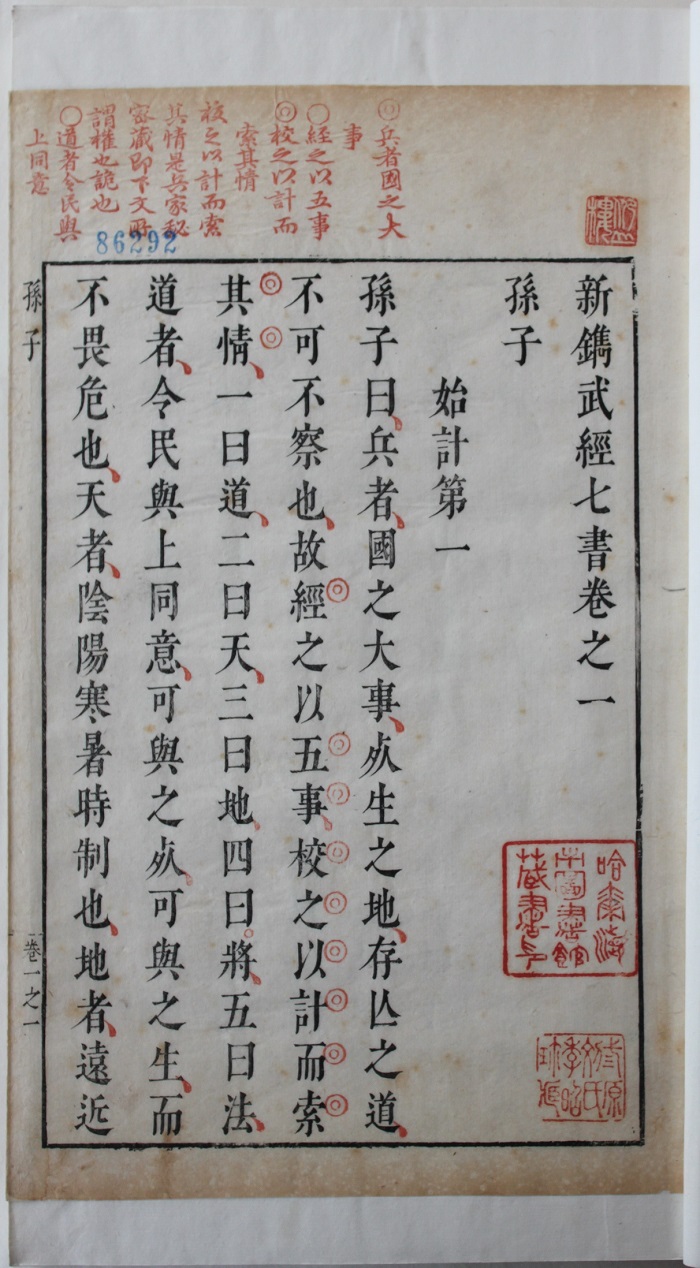 新鐫武經七書卷之一
孫子
始計第一
孫子曰兵者國之大事死生之地存亡之道
不可不察也故經之以五事校之以計而索
其情一曰道二曰天三曰地四曰將五曰法
道者令民與上同意可與之死可與之生而
不畏危也天者陰陽寒暑時制也地者遠近
孫子
卷一之一
◎兵者國之大
事
○經之以五事
◎校之以計而
索其情
校之以計而索
其情是兵家秘
密藏即下文所
謂權也詭也
○道者令民與
上同意
86292
哈爾濱
市圖書館
藏書印
太原
劉氏
季昭